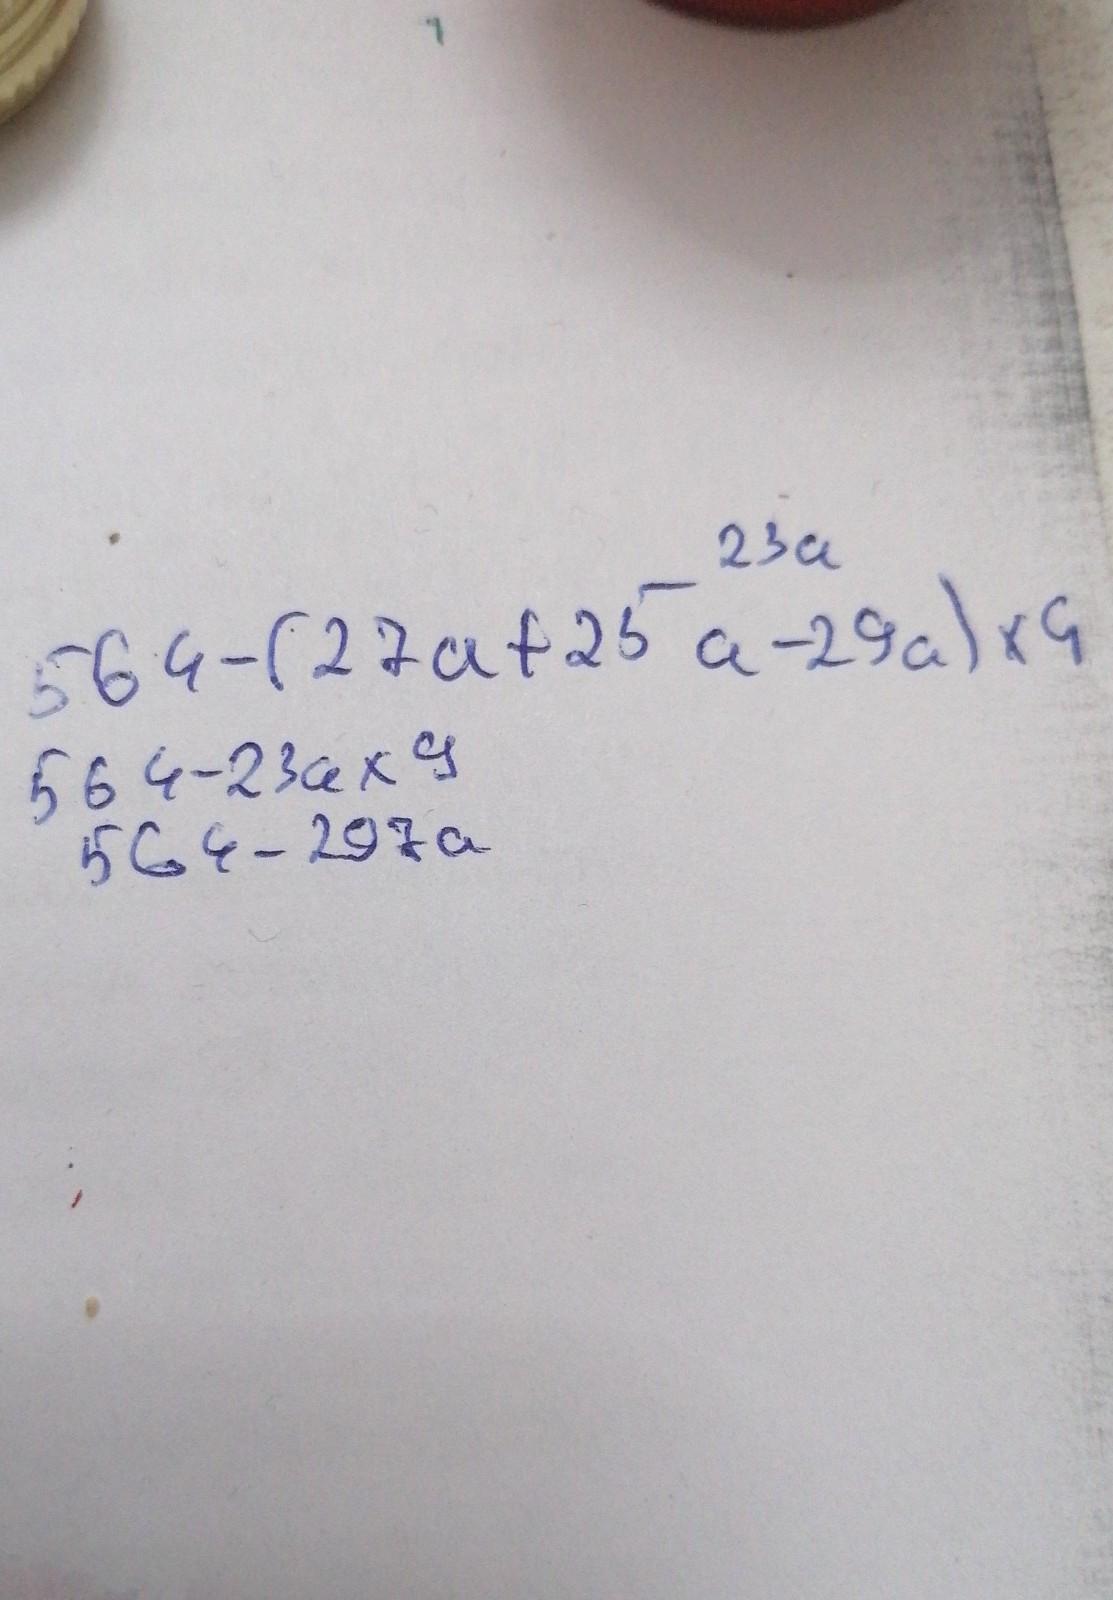 23a
564-(27a+25a-29a)x9
564-23ax9
564-297a